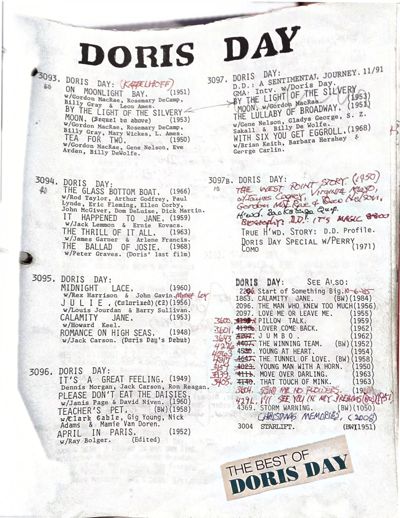 DORIS DAY
3093. DORIS DAY: (KAPPELHOFF)
ON MOONLIGHT BAY. (1951)
w/Gordon MacRae, Rosemary DeCamp,
Billy Gray & Leon Ames.
BY THE LIGHT OF THE SILVERY
MOON. (Sequel to above) (1953)
w/Gordon MacRae, Rosemary DeCamp,
Billy Gray, Mary Wickes, L. Ames.
TEA FOR TWO. (1950)
w/Gordon MacRae, Gene Nelson, Eve
Arden, Billy DeWolfe.
3094. DORIS DAY:
THE GLASS BOTTOM BOAT. (1966)
w/Rod Taylor, Arthur Godfrey, Paul
Lynde, Eric Fleming, Ellen Corby,
John McGiver, Dom DeLuise, Dick Martin.
IT HAPPENED TO JANE. (1959)
w/Jack Lemmon & Ernie Kovacs.
THE THRILL OF IT ALL. (1963)
w/James Garner & Arlene Francis.
THE BALLAD OF JOSIE. (1968)
w/Peter Graves. (Doris' last film)
3095. DORIS DAY:
MIDNIGHT LACE. (1960)
w/Rex Harrison & John Gavin, Myrna Loy
JULIE, (Colorized)(CZ) (1956)
w/Louis Jourdan & Barry Sullivan.
CALAMITY JANE. (1953)
w/Howard Keel.
ROMANCE ON HIGH SEAS. (1948)
w/Jack Carson. (Doris Day's Debut)
3096. DORIS DAY:
IT'S A GREAT FEELING. (1949)
Dennis Morgan, Jack Carson, Ron Reagan.
PLEASE DON'T EAT THE DAISIES.
w/Janis Page & David Niven. (1960)
TEACHER'S PET. (BW)(1958)
w/Clark Gable, Gig Young, Nick
Adams & Mamie Van Doren.
APRIL IN PARIS. (1952)
w/Ray Bolger. (Edited)
3097. DORIS DAY:
D.D.: A SENTIMENTAL JOURNEY. 11/91
GMA: Intv. w/Doris Day.
BY THE LIGHT OF THE SILVERY
MOON. w/Gordon MacRae. (1953)
THE LULLABY OF BROADWAY. (1951)
w/Gene Nelson, Gladys George, S. Z.
Sakall & Billy De Wolfe.
WITH SIX YOU GET EGGROLL. (1968)
w/Brian Keith, Barbara Hershey &
George Carlin.
3097B. DORIS DAY:
THE WEST POINT STORY (1950)
w/James Cagney, Virginia Mayo,
Gordon MacRae & Gene Nelson,
H'wd. Backstage
Biography: D.D: IT'S MAGIC
TRUE H'WD. STORY: D.D. PROFILE.
DORIS DAY SPECIAL W/PERRY
COMO (1971)
DORIS DAY: SEE ALSO:
Start of Something Big. 10-6-85
1863. CALAMITY JANE. (BW)(1984)
2096. THE MAN WHO KNEW TOO MUCH (1956)
2097. LOVE ME OR LEAVE ME. (1955)
PILLOW TALK. (1959)
LOVER COME BACK. (1962)
JUMBO (1962)
THE WINNING TEAM. (BW) (1952)
YOUNG AT HEART. (1954)
THE TUNNEL OF LOVE. (BW)(1958)
YOUNG MAN WITH A HORN. (1950)
MOVE OVER DARLING. (1963)
THAT TOUCH OF MINK. (1962)
SEND ME NO FLOWERS.
I'LL SEE YOU IN MY DREAMS
4369. STORM WARNING. (BW)(1050)
(CHRISTMAS MEMORIES) (2008)
3004 STARLIFT. (BW)1951)
THE BEST OF
DORIS DAY